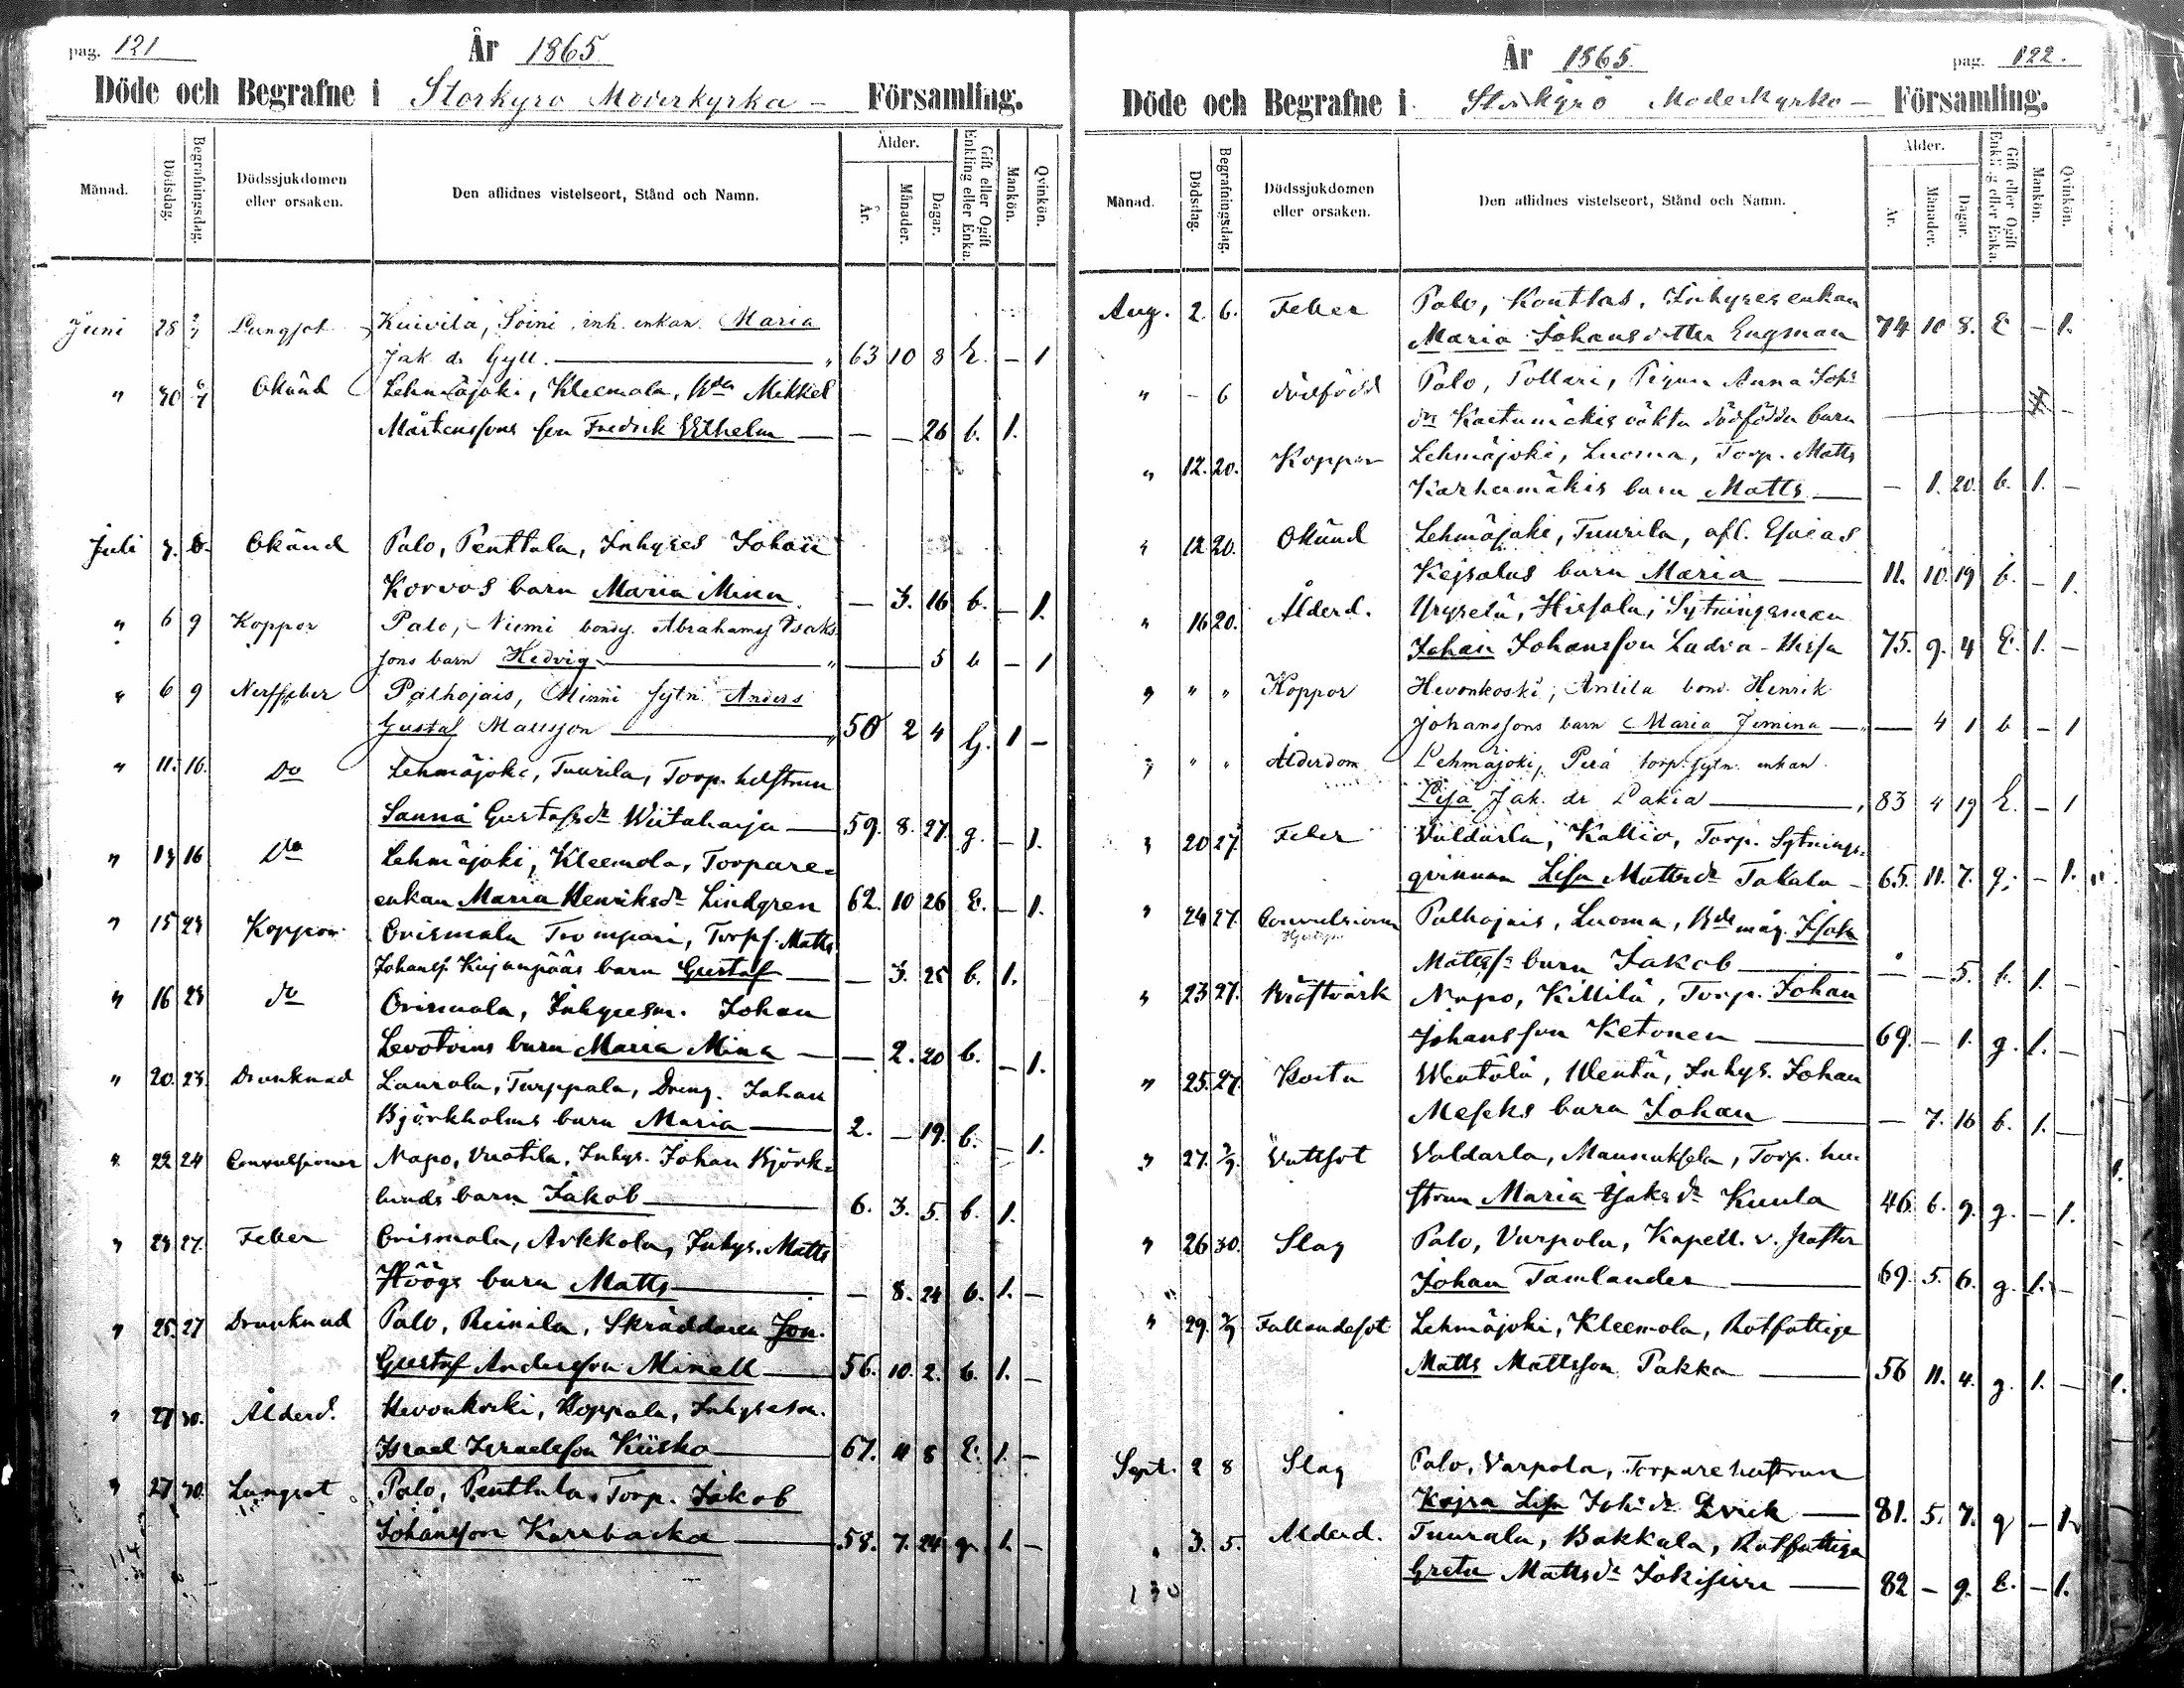 pag. 121
År 1865
Döde och Begrafne i Storkyro Moderkyrka Församling.
Månad.
Dödsdag.
Begrafningsdag.
Dödssjukdomen eller orsaken.
Den aflidnes vistelseort, Stånd och Namn.
Ålder.
År.
Månader.
Dagar.
Gift eller Ogift Enkling eller Enka.
Mankön.
Qvinkön.
Juni 28 2/7 Lungsot Kuivila, Soini inh. enkan Maria
Jak. dr Gyll. 63 10 8 E. — 1
" 30 6/7 Okänd Lehmäjoki, Kleemola, Bdn Mikkel
Mårtenssons son Fredrik Wilhelm — — 26 b. 1.
Juli 3. Okänd Palo, Penttala, Inhyses Johan
Korvos barn Maria Mina — 3. 16 b. — 1.
" 6 9 Koppor Palo, Niemi bondes. Abrahams Isaks
sons barn Hedvig — — 5 b — 1
" 6 9 Nerffeber Palhojais, Minni sytn. Anders
Gustaf Mattsson 50 2 4 G. 1 —
" 11. 16. Do Lehmäjoki, Tuurila, Torp. hustrun
Sanna Gustafsdr Wiitaharja 59. 8. 27. g. — 1.
" 13 16 Do Lehmäjoki, Kleemola, Torpare-
enkan Maria Henriksdr Lindgren 62. 10 26 E. — 1.
" 15 23 Koppor Orismala Trompari, Torps. Matts
Johanss. Kujanpääs barn Gustaf — 3. 25 b. 1.
" 16 23 do Orismala, Inhysesm. Johan
Levotoins barn Maria Mina — 2. 20 b. — 1.
" 20. 23. Drunknad Laurola, Turppala, Dreng. Johan
Björkholms barn Maria 2. — 19. b. — 1.
" 22 24 Convulsioner Napo, Uuatila, Inhys. Johan Björk-
lunds barn Jakob 6. 3. 5. b. 1.
" 23 27. Feber Orismala, Arkkola, Inhys. Matts
Höögs barn Matts — 8. 24 b. 1. —
" 25. 27 Drunknad Palo, Reinila, Skräddaren Jon.
Gustaf Andersson Minell 56. 10. 2. b. 1. —
" 27 30. Ålderd. Hevonkoski, Koppala, Inhysesm.
Israel Israelsson Kiisko 67. 11 8 E. 1. —
" 27 30. Lungsot Palo, Penttala, Torp. Jakob
Johansson Karrbacka 58. 7. 24 g. 1. —
114
År 1865
pag. 122.
Döde och Begrafne i Storkyro Moderkyrko Församling.
Månad.
Dödsdag.
Begrafningsdag.
Dödssjukdomen eller orsaken.
Den aflidnes vistelseort, Stånd och Namn.
Ålder.
År.
Månader.
Dagar.
Gift eller Ogift Enkling eller Enka.
Mankön.
Qvinkön.
Aug. 2. 6. Feber Palo, Konttas, Inhyses enkan
Maria Johansdotter Engman 74 10 8. E — 1.
" — 6 dödfödd Palo, Pollari, Pigan Anna Johs
dr Kaetumäkis oäkta dödfödda barn —
" 12. 20. Koppor Lehmäjoki, Luoma, Torp. Matts
Karhumäkis barn Matts — 1. 20. b. 1. —
" 12 20. Okänd Lehmäjoki, Tuurila, afl. Esaias
Kejsalas barn Maria 11. 10. 19 b. — 1.
" 16 20. Ålderd. Yrysetä, Hissala, Sytningsman
Johan Johansson Ladva-Hissa 75. 9. 4 E. 1. —
" " " Koppor Hevonkoski, Antila bond. Henrik
Johanssons barn Maria Jemina — 4 1 b — 1
" " " Ålderdom Lehmäjoki, Perä torp. sytn. enkan
Lisa Jak. dr Lakia 83 4 19 E. — 1
" 20 27. Feber Valdarla, Kallio, Torp. Sytnings-
qvinnan Lisa Mattsdr Takala 65. 11. 7. g. — 1.
" 24 27. Convulsioner Palhojais, Luoma, Bds måg. Isak
Mattss. barn Jakob — — 5. b. 1. —
" 23 27. Bröstvärk Napo, Killilä, Torp. Johan
Johansson Ketonen 69. — 1. g. 1. —
" 25. 27. Hosta Wentälä, Wentä, Inhys. Johan
Meseks barn Johan — 7. 16 b. 1. —
" 27. 3/9. Vattsot Valdarla, Maunuksela, Torp. hu-
strun Maria Isaksdr Kuula 46. 6. 9. g. — 1.
" 26 30. Slag Palo, Varpola, Kapell. v. Pastor
Johan Tamlander 69. 5. 6. g. 1. —
" 29. 3/9 Fallandesot Lehmäjoki, Kleemola, Rotfattige
Matts Mattsson Pakka 56 11. 4. g. 1. —
Sept. 2 8 Slag Palo, Varpola, Torparehustrun
Kajsa Lisa Johsdr Drick 81. 5. 7. g — 1.
" 3. 5. Ålderd. Tuurala, Bakkala, Rotfattiga
Greta Mattsdr Jokisirra 82 — 9. E. — 1.
130